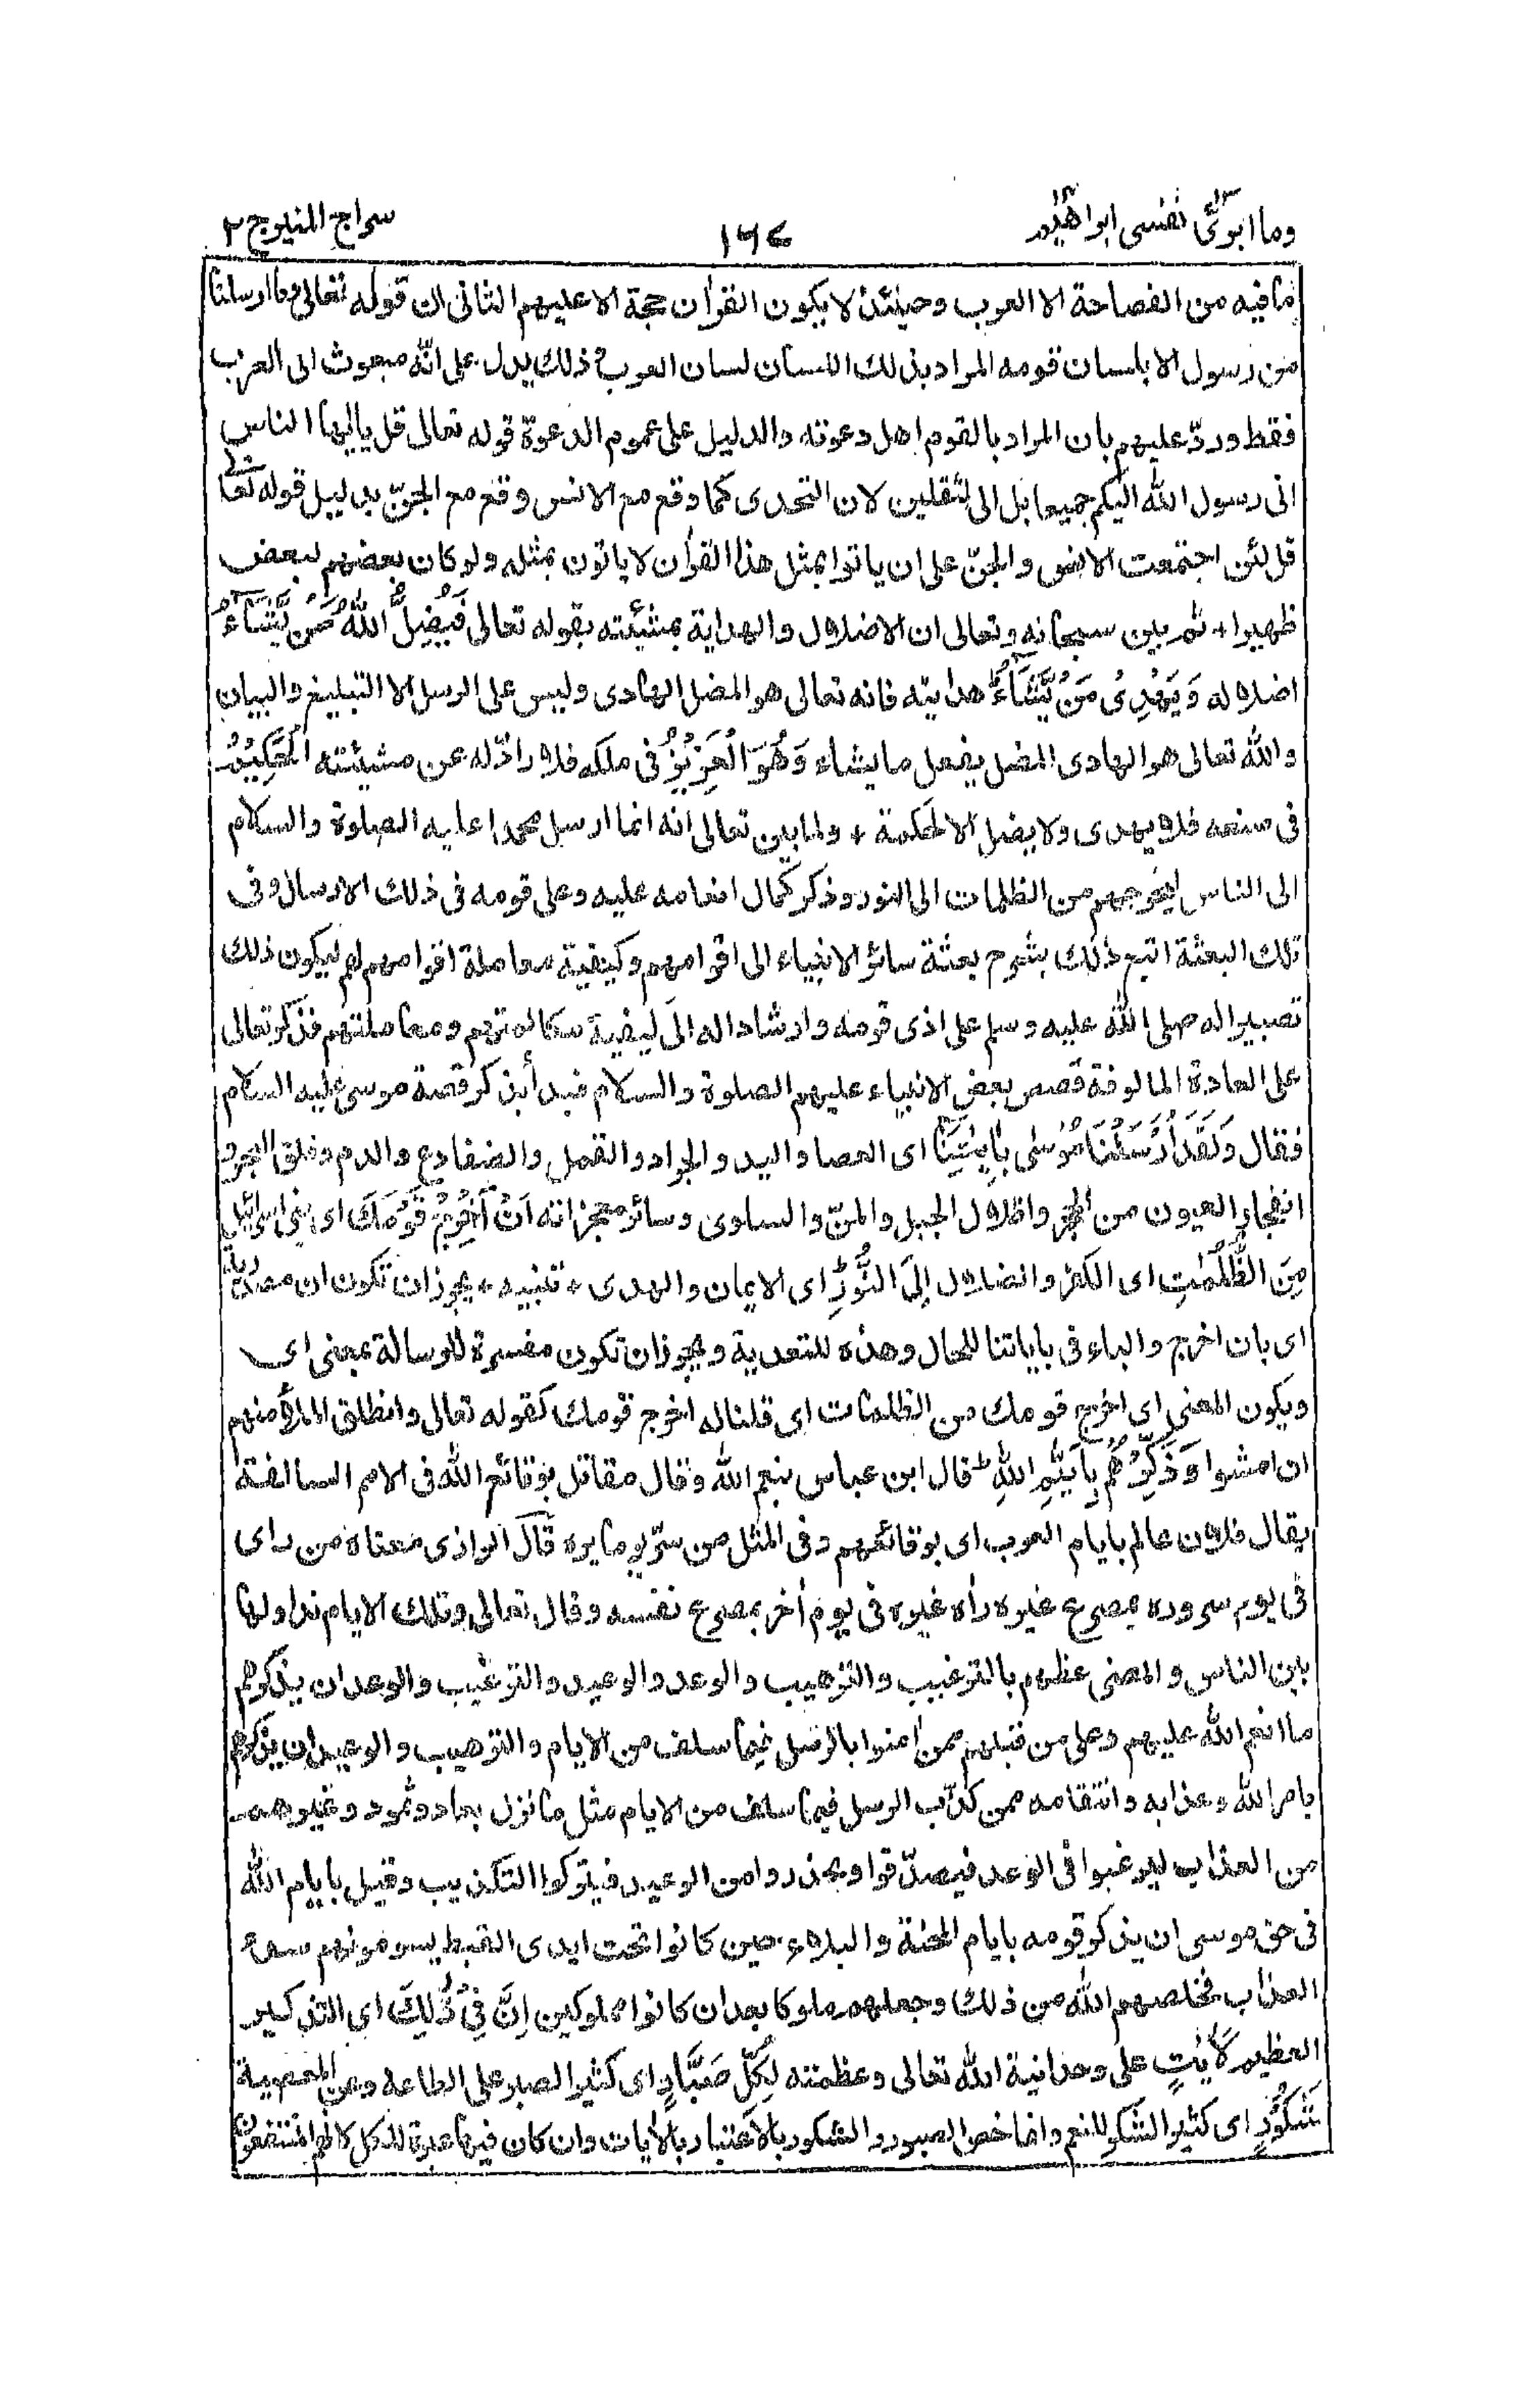 وما ابرئ نفسی ۱۳ ابراهیم ۱۴
۱۶۷
سراج المنیر ج ۲
ما فیه من الفصاحة الا العرب وحینئذ لا یکون القرأن حجة الا علیهم الثانی ان قوله تعالی وما ارسلنا
من رسول الا بلسان قومه المراد بذلك اللسان لسان العرب وذلك یدل علی انّه مبعوث الی العرب
فقط وردّ علیهم بان المراد بالقوم اهل دعوته والدلیل علی عموم الدعوة قوله تعالی قل یا ایها الناس
انی رسول الله الیکم جمیعا بل الی الثقلین لان التحدی کما وقع مع الانس وقع مع الجنّ بدلیل قوله تعا
قل لئن اجتمعت الانس والجنّ علی ان یاتوا بمثل هذا القرأن لا یاتون بمثله ولو کان بعضهم لبعض
ظهیرا + ثم بین سبحانه وتعالی ان الاضلال والهدایة بمشیئته بقوله تعالی فَیُضِلُّ اللهُ مَنْ یَّشَآءُ
اضلاله وَیَهْدِیْ مَنْ یَّشَآءُ هدایته فانه تعالی هو المضل الهادی ولیس علی الرسل الا التبلیغ والبیان
والله تعالی هو الهادی المضل یفعل ما یشاء وَهُوَ الْعَزِیْزُ فی ملکه فلا رادّ له عن مشیئته الْحَکِیْمُ
فی صنعه فلا یهدی ولا یضل الا لحکمة + ولما بین تعالی انه انما ارسل محمدا علیه الصلوة والسلام
الی الناس لیخرجهم من الظلمات الی النور وذکر کمال انعامه علیه وعلی قومه فی ذلك الارسال وفی
تلك البعثة اتبع ذلك بشرح بعثة سائر الانبیاء الی اقوامهم وکیفیة معاملة اقوامهم لهم لیکون ذلك
تصبیرا له صلی الله علیه وسلم علی اذی قومه وارشادا له الی کیفیة مکالمتهم ومعاملتهم فذکر تعالی
علی العادة المالوفة قصص بعض الانبیاء علیهم الصلوة والسلام فبدأ بذکر قصة موسی علیه السلام
فقال وَلَقَدْ اَرْسَلْنَا مُوْسٰی بِاٰیٰتِنَا ای العصا والید والجراد والقمل والضفادع والدم وفلق البحر و
انفجار العیون من الحجر واظلال الجبل والمنّ والسلوی وسائر معجزاته اَنْ اَخْرِجْ قَوْمَكَ ای بنی اسرائیل
مِنَ الظُّلُمٰتِ ای الکفر والضلال اِلَی النُّوْرِ ای الایمان والهدی + تنبیه + یجوز ان تکون ان مصدریة
ای بان اخرج والباء فی بایاتنا للحال وهذه للتعدیة ویجوز ان تکون مفسرة للرسالة بمعنی ای
ویکون المعنی ای اخرج قومك من الظلمات ای قلنا له اخرج قومك کقوله تعالی وانطلق الملأ منهم
ان امشوا وَذَکِّرْهُمْ بِاَیّٰمِ اللهِ قال ابن عباس بنعم الله وقال مقاتل بوقائع الله فی الامم السالفة
یقال فلان عالم بایام العرب ای بوقائعهم وفی المثل من سرّ یوما یره قال الرازی معناه من رای
فی یوم سروره بمصرع غیره رأه غیره فی یوم أخر بمصرع نفسه وقال تعالی وتلك الایام نداولها
بین الناس والمعنی عظهم بالترغیب والترهیب والوعد والوعید والترغیب والوعد ان یذکرهم
ما انعم الله علیهم وعلی من قبلهم ممن أمنوا بالرسل فیما سلف من الایام والترهیب والوعید ان یذکرهم
بامر الله وعذابه وانتقامه ممن کذّب الرسل فیما سلف من الایام مثل ما نزل بعاد وثمود وغیرهم
من العذاب لیرغبوا فی الوعد فیصدّقوا ویحذروا من الوعید فیترکوا التکذیب وقیل بایام الله
فی حق موسی ان یذکر قومه بایام المحنة والبلاء حین کانوا تحت ایدی القبط یسومونهم سوء
العذاب فخلصهم الله من ذلك وجعلهم ملوکا بعد ان کانوا مملوکین اِنَّ فِیْ ذٰلِكَ ای التذکیر
العظیم لَاٰیٰتٍ علی وحدانیة الله تعالی وعظمته لِکُلِّ صَبَّارٍ ای کثیر الصبر علی الطاعة وعن المعصیة
شَکُوْرٍ ای کثیر الشکر للنعم وانما خص الصبور والشکور بالاعتبار بالأیات وان کان فیها عبرة للکل لانهم المنتفعون